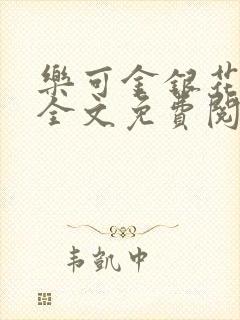 樂可金銀花
全文免費閱
韦凱中